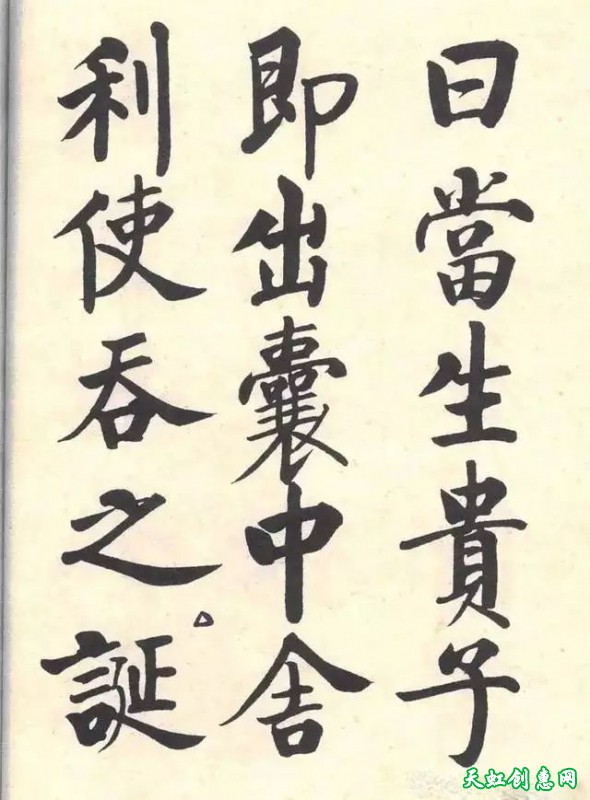 曰當生貴子
即出囊中舍
利使吞之誕
天虹创惠网